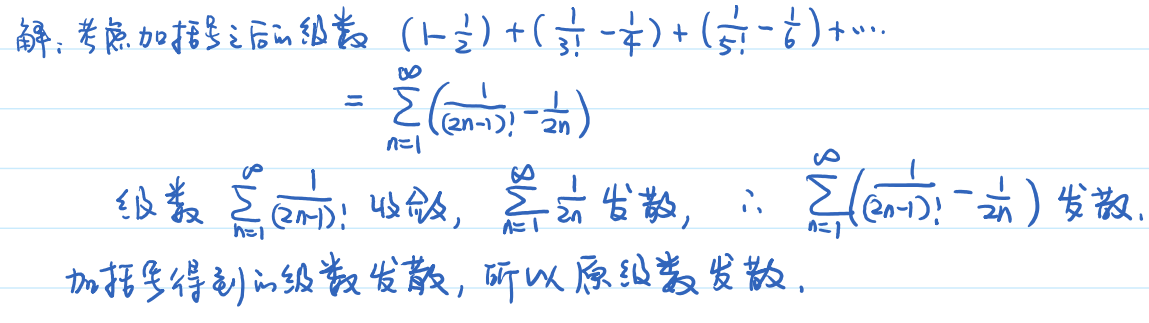 解：考虑加括号之后的级数 (1-1/2)+(1/3!-1/4)+(1/5!-1/6)+⋯
= ∑_{n=1}^{∞}(1/(2n-1)!-1/2n)
级数 ∑_{n=1}^{∞} 1/(2n-1)! 收敛, ∑_{n=1}^{∞} 1/2n 发散, ∴ ∑_{n=1}^{∞}(1/(2n-1)!-1/2n) 发散.
加括号得到的级数发散, 所以原级数发散.